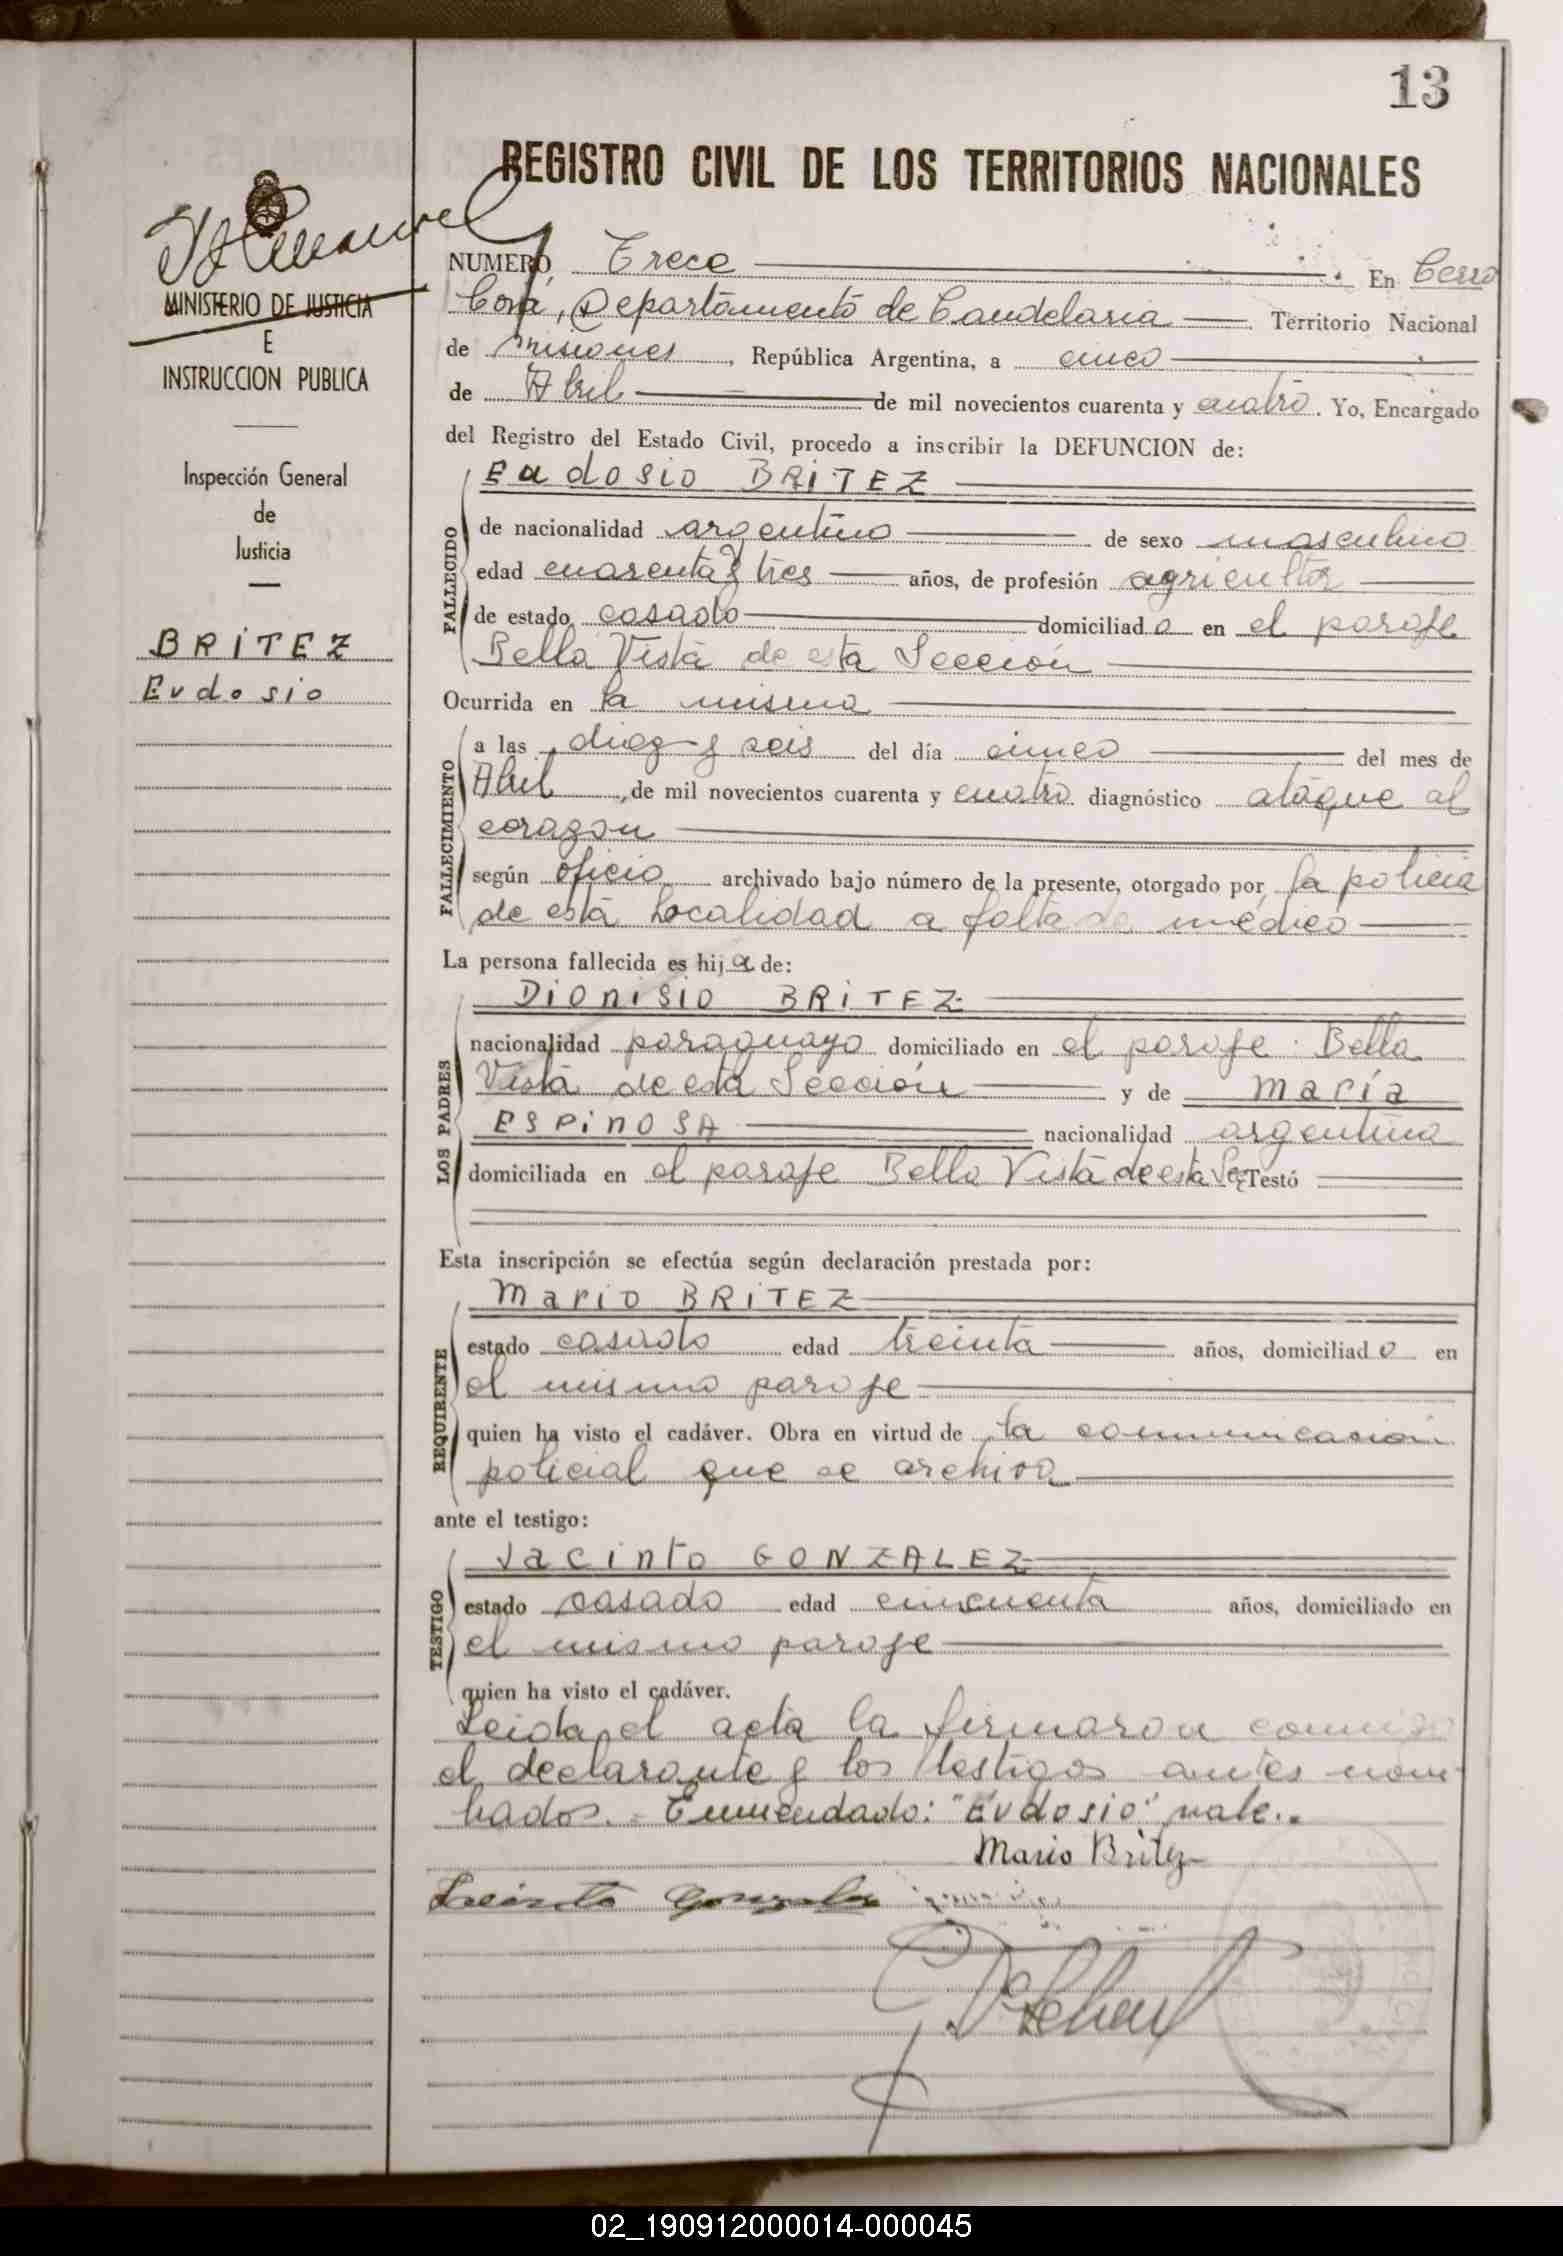 13
REGISTRO CIVIL DE LOS TERRITORIOS NACIONALES
MINISTERIO DE JUSTICIA
E
INSTRUCCION PUBLICA
Inspección General
de
Justicia
BRITEZ
Eudosio
NUMERO Trece En Cerro
Corá, Departamento de Candelaria Territorio Nacional
de Misiones, República Argentina, a cinco
de Abril de mil novecientos cuarenta y cuatro. Yo, Encargado
del Registro del Estado Civil, procedo a inscribir la DEFUNCION de:
Eudosio BRITEZ
FALLECIDO
de nacionalidad argentino de sexo masculino
edad cuarenta y tres años, de profesión agricultor
de estado casado domiciliado en el paraje
Bella Vista de esta Sección
Ocurrida en la misma
FALLECIMIENTO
a las diez y seis del día cinco del mes de
Abril, de mil novecientos cuarenta y cuatro diagnóstico ataque al
corazon
según oficio archivado bajo número de la presente, otorgado por la policia
de esta Localidad a falta de médico
La persona fallecida es hijo de:
LOS PADRES
Dionisio BRITEZ
nacionalidad paraguayo domiciliado en el paraje Bella
Vista de esta Sección y de Maria
ESPINOSA nacionalidad argentina
domiciliada en el paraje Bella Vista de esta Sec Testó
Esta inscripción se efectúa según declaración prestada por:
REQUIRENTE
Mario BRITEZ
estado casado edad treinta años, domiciliado en
el mismo paraje
quien ha visto el cadáver. Obra en virtud de la comunicación
policial que se archiva
ante el testigo:
TESTIGO
Jacinto GONZALEZ
estado casado edad cincuenta años, domiciliado en
el mismo paraje
quien ha visto el cadáver.
Leida el acta la firmaron conmigo
el declarante y los testigos antes nom-
bados. - Enmendado: "Eudosio" vale..
Mario Britez
Jacinto Gonzalez
02_190912000014-000045